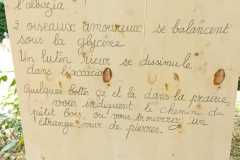 l'albizia
3 oiseaux amoureux se balancent
sous la glycine
Un lutin rieur se dissimule
dans l'acacia
Quelques botte çi et là dans la prairie
vous indiquent le chemin du
petit bois, où vous trouverez un
étrange mur de pierres.